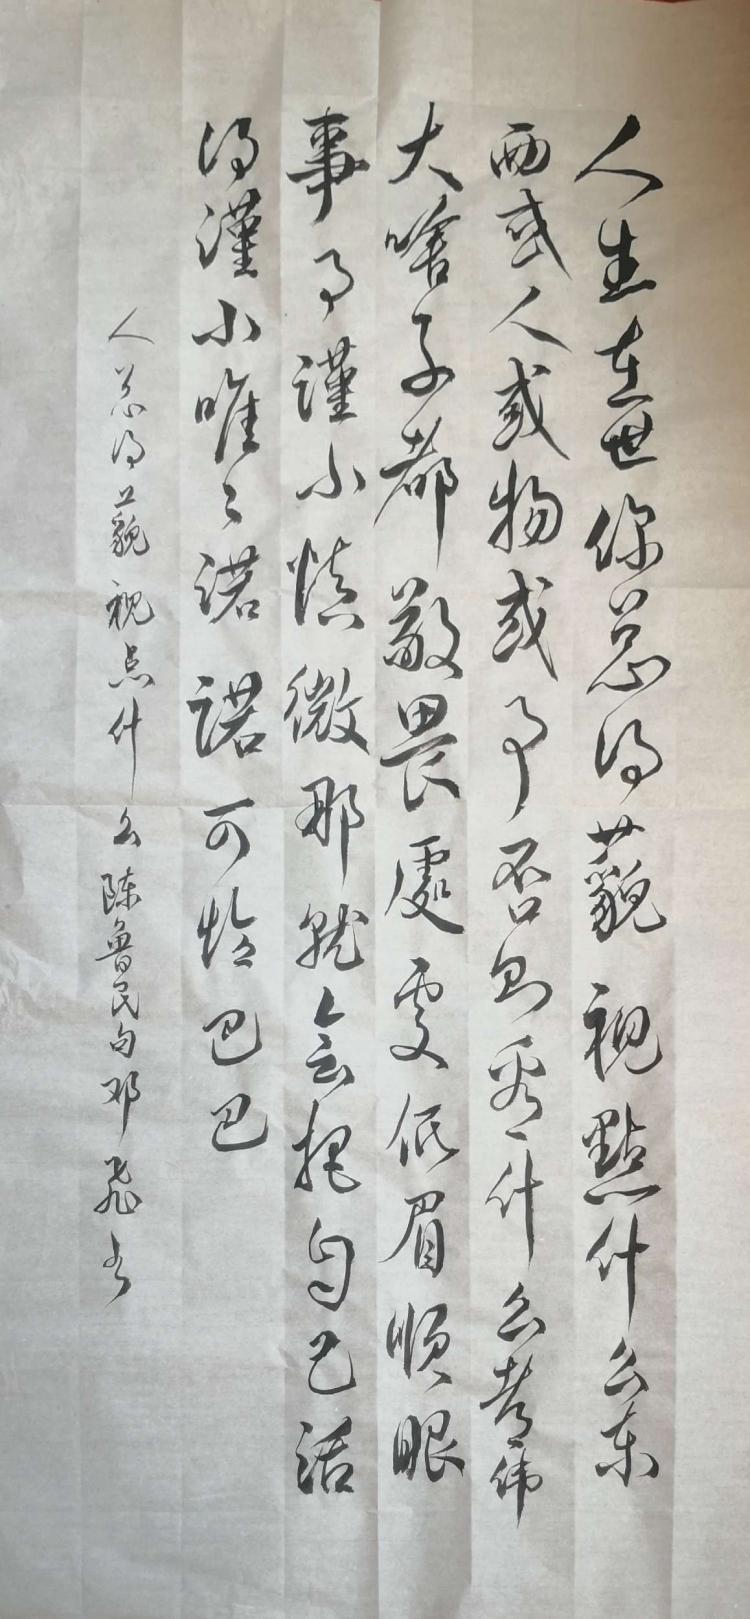 人生在世你总得藐视點什么东
西或人或物或事否则看什么都伟
大啥子都敬畏處處低眉顺眼
事事谨小慎微那就会把自己活
得谨小唯唯诺诺可怜巴巴
人总得藐视点什么陈鲁民句邓飛书